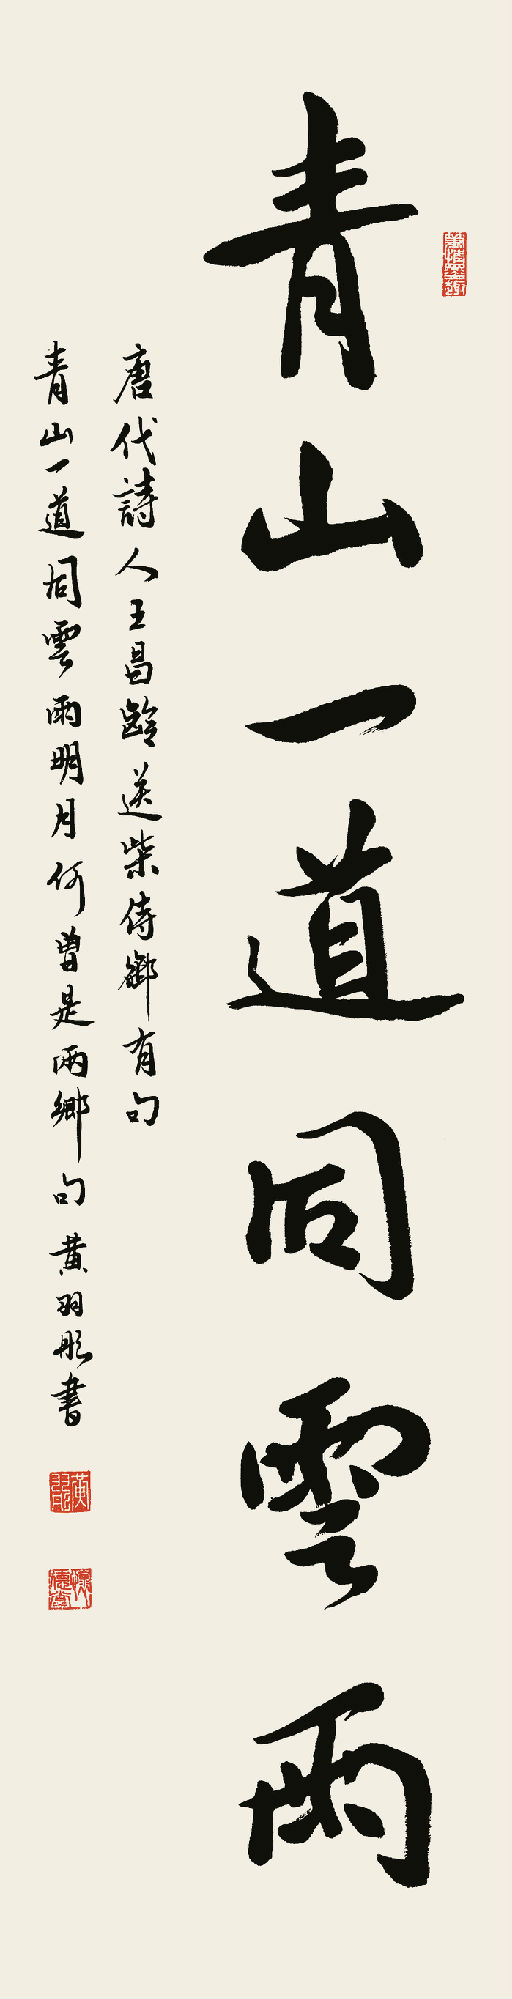 青山一道同雲雨
唐代詩人王昌齡送柴侍御有句
青山一道同雲雨明月何曾是兩鄉句黃羽彤書